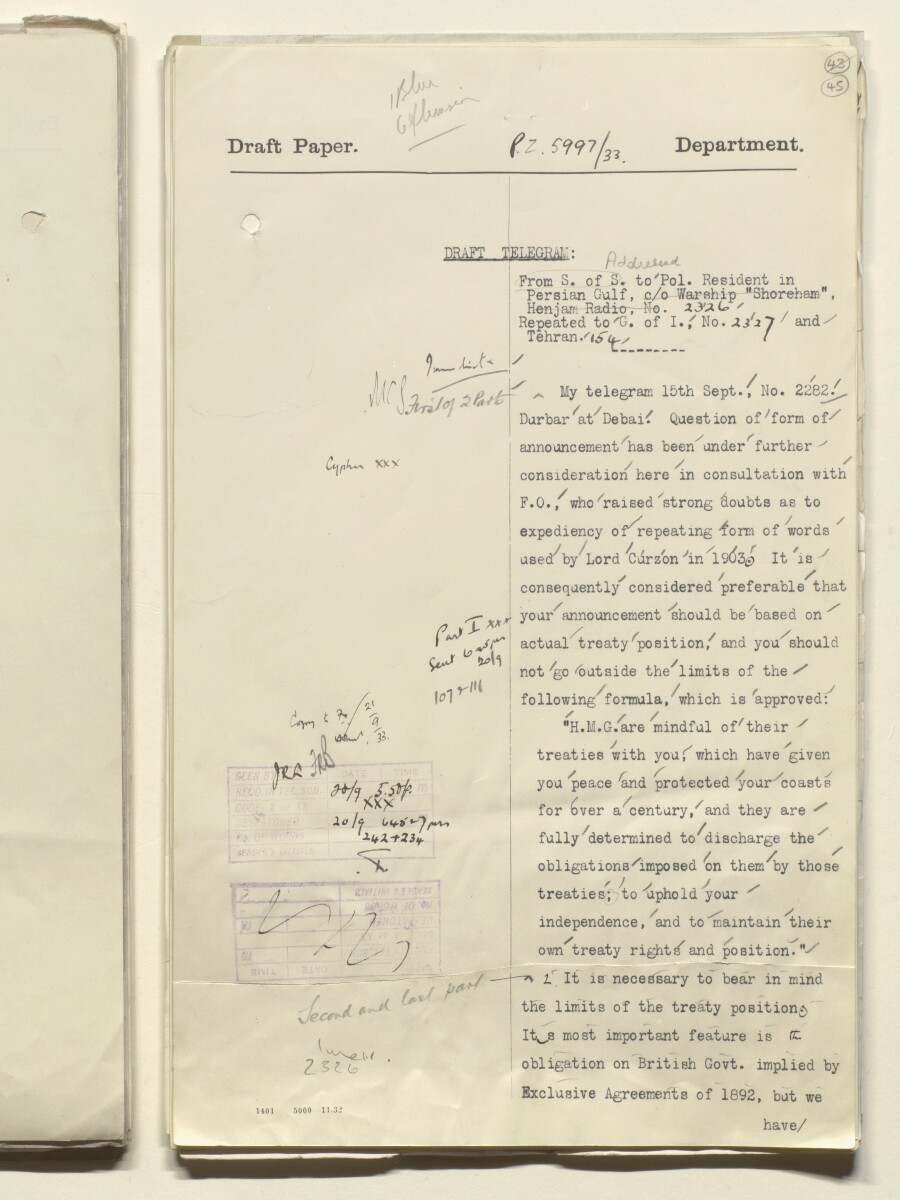 43
45
1 Blue
Draft Paper.
P.Z. 5997/33.
Department.
DRAFT TELEGRAM:
Addressed
From S. of S. to Pol. Resident in
Persian Gulf, c/o Warship "Shoreham",
Henjam Radio, No. 2326
Repeated to G. of I., No. 2327 and
Tehran. 154
Immediate
First of 2 Parts
My telegram 15th Sept., No. 2282.
Durbar at Debai. Question of form of
announcement has been under further
Cypher XXX
consideration here in consultation with
F.O., who raised strong doubts as to
expediency of repeating form of words
used by Lord Curzon in 1903. It is
consequently considered preferable that
your announcement should be based on
Part I xxx
actual treaty position, and you should
Sent 6
20/9
not go outside the limits of the
107 - 111
following formula, which is approved:
Copy to
21
9
33.
"H.M.G. are mindful of their
treaties with you, which have given
you peace and protected your coasts
for over a century, and they are
fully determined to discharge the
obligations imposed on them by those
treaties; to uphold your
independence, and to maintain their
own treaty rights and position."
DATE TIME
20/9 5.50p. m
XXX
20/9
242+234
X
DATE
TIME
Second and last part
2 It is necessary to bear in mind
the limits of the treaty position.
Its most important feature is
2326
obligation on British Govt. implied by
Exclusive Agreements of 1892, but we
1401 5000 11.32
have/